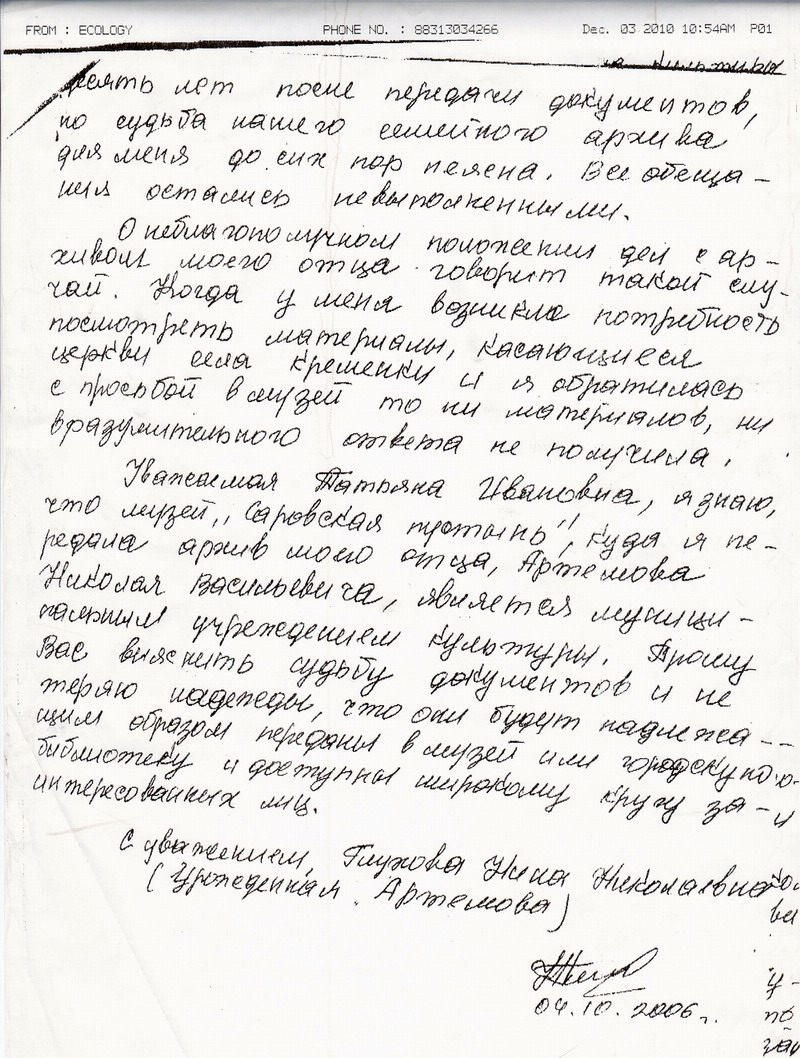 FROM : ECOLOGY PHONE NO. : 88313034266 Dec. 03 2010 10:54AM P01
десять лет после передачи документов,
но судьба нашего семейного архива
для меня до сих пор неясна. Все обеща-
ния остались невыполненными.
О неблагополучном положении дел с ар-
хивом моего отца говорит такой слу-
чай. Когда у меня возникла потребность
посмотреть материалы, касающиеся
церкви села Кременки и я обратилась
с просьбой в музей то ни материалов, ни
вразумительного ответа не получила.
Уважаемая Татьяна Ивановна, я знаю,
что музей „Саровская пустынь", куда я пе-
редала архив моего отца, Артемова
Николая Васильевича, является муници-
пальным учреждением культуры. Прошу
Вас выяснить судьбу документов и не
теряю надежды, что они будут надлежа--
щим образом переданы в музей или городскую
библиотеку и доступны широкому кругу за-
интересованных лиц.
С уважением, Глухова Нина Николаевна
(Урожденная Артемова)
04.10.2006г.